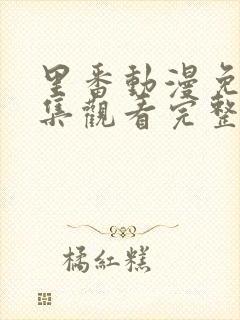 里番動漫免
集觀看完整
橘紅糕